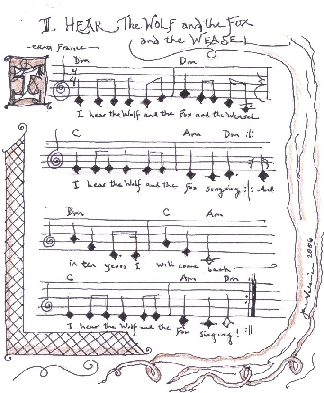 I HEAR The Wolf and the Fox
and the WEASEL
France
Dm Dm
4
4
I hear the Wolf and the Fox and the Weasel
C Am Dm
I hear the Wolf and the Fox singing :|: And
Dm C Am
in ten years I will come back
C Am Dm
I hear the Wolf and the Fox singing! :||
2006